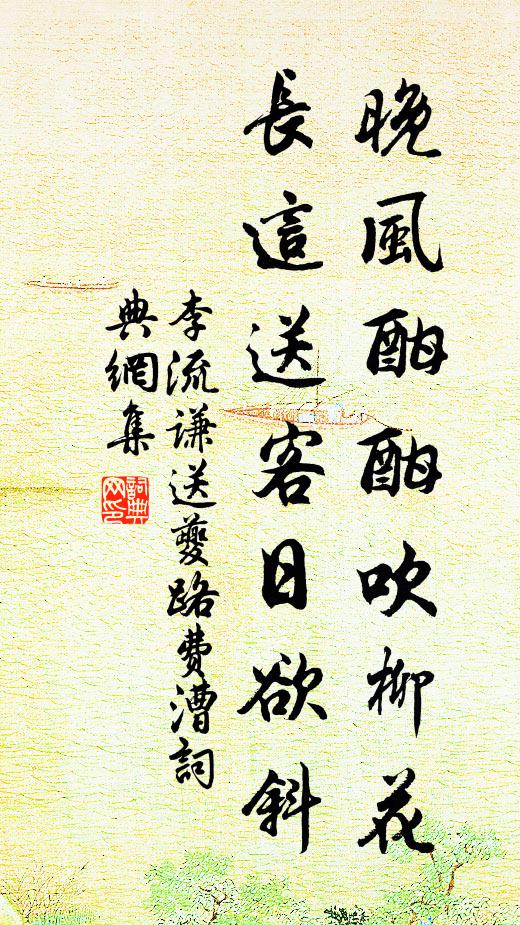 晚風酣酣吹柳花
長這送客日欲斜
李流謙送夔路費漕詞
典網集
詞典網印